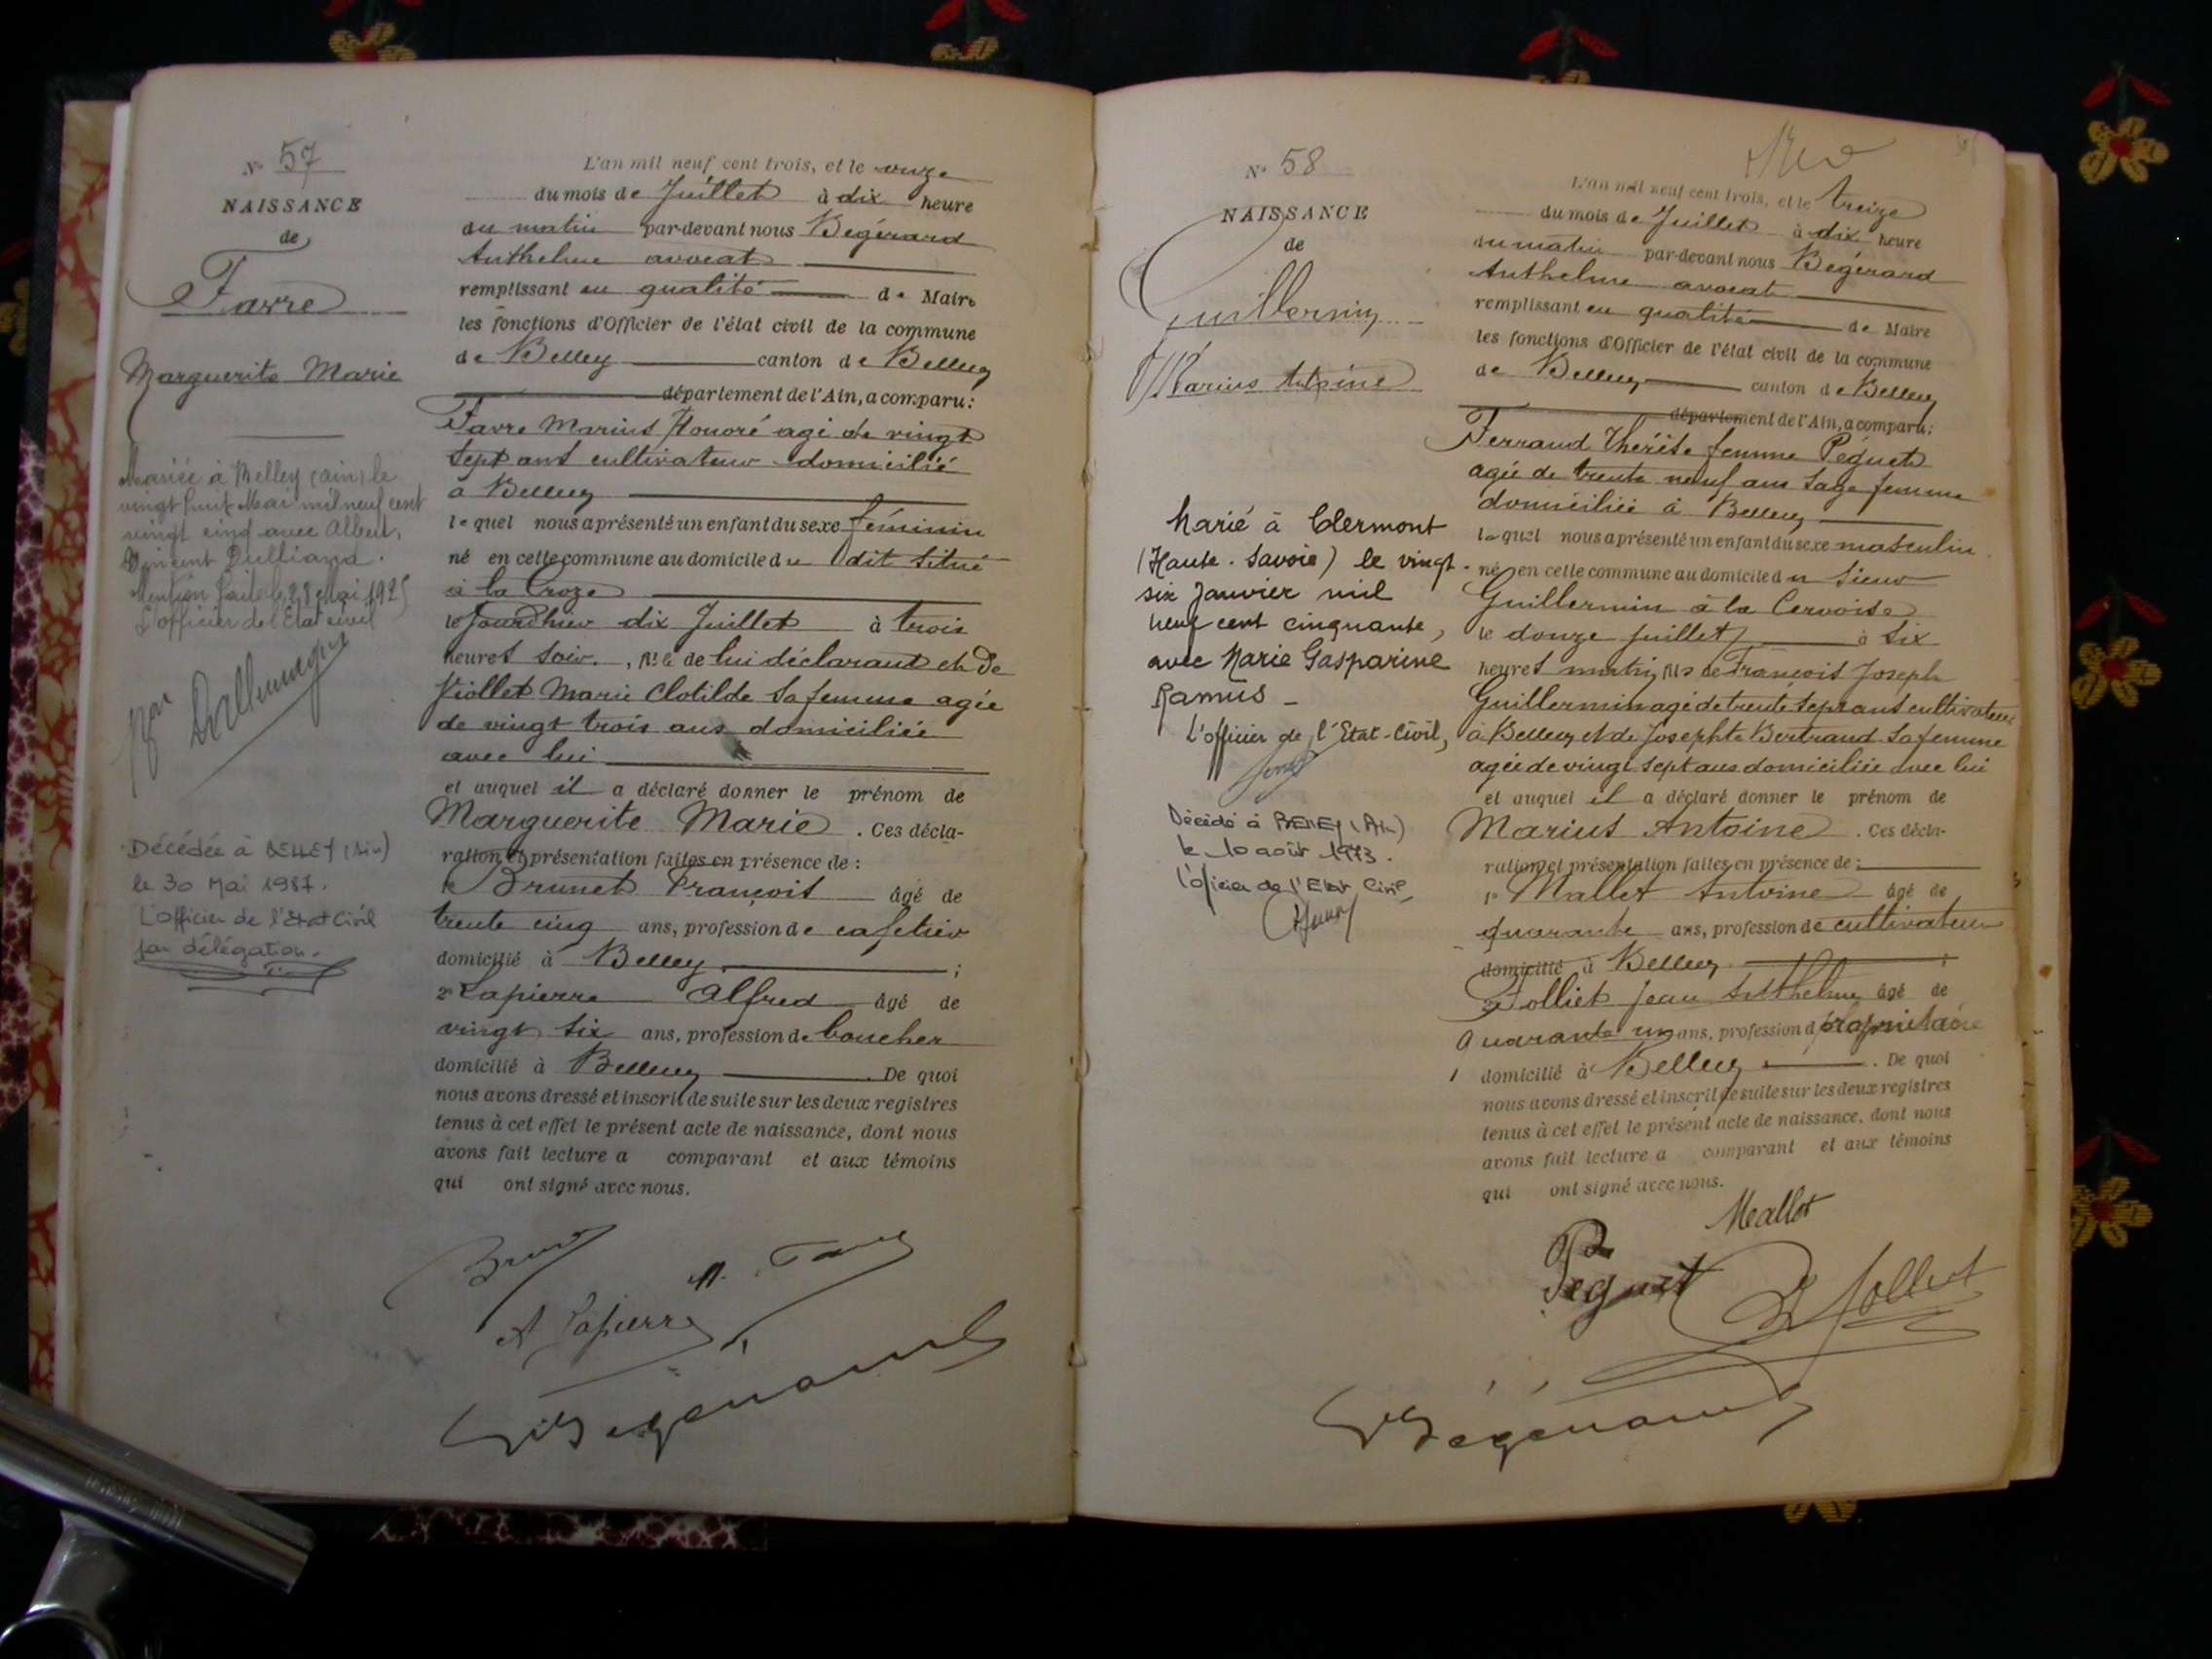 N° 57
NAISSANCE
de
Favre
Marguerite Marie
Mariée à Belley (Ain) le
vingt huit Mai mil neuf cent
vingt cinq avec Albert,
Vincent Dulliand.
Mention faite le 28 Mai 1925
L'officier de l'Etat civil
Décédée à BELLEY (Ain)
le 30 Mai 1987.
L'officier de l'Etat Civil
par délégation.
L'an mil neuf cent trois, et le onze
du mois de Juillet à dix heure
du matin par-devant nous Bégérard
Anthelme avocat
remplissant en qualité de Maire
les fonctions d'Officier de l'état civil de la commune
de Belley canton de Belley
département de l'Ain, a comparu:
Favre Marius Honoré agé de vingt
sept ans cultivateur domicilié
à Belley
lequel nous a présenté un enfant du sexe féminin
né en cette commune au domicile du dit situé
à la Croze
le jourdhier dix Juillet à trois
heures soir, né de lui déclarant et de
Viollet Marie Clotilde sa femme agée
de vingt trois ans domiciliée
avec lui
et auquel il a déclaré donner le prénom de
Marguerite Marie. Ces décla-
ration et présentation faites en présence de :
1° Brunet François âgé de
trente cinq ans, profession de cafetier
domicilié à Belley ;
2° Lapierre Alfred âgé de
vingt six ans, profession de boucher
domicilié à Belley. De quoi
nous avons dressé et inscrit de suite sur les deux registres
tenus à cet effet le présent acte de naissance, dont nous
avons fait lecture a comparant et aux témoins
qui ont signé avec nous.
Brunet
M. Favre
A Lapierre
Bégérard
N° 58
NAISSANCE
de
Guillermin
Marius Antoine
Marié à Clermont
(Haute-Savoie) le vingt-
six Janvier mil
neuf cent cinquante,
avec Marie Gasparine
Ramus -
L'officier de l'Etat-Civil,
Décédé à BELLEY (Ain)
le 10 août 1973.
l'oficier de l'Etat Civil
L'an mil neuf cent trois, et le treize
du mois de Juillet à dix heure
du matin par-devant nous Bégérard
Anthelme avocat
remplissant en qualité de Maire
les fonctions d'Officier de l'état civil de la commune
de Belley canton de Belley
département de l'Ain, a comparu:
Ferraud Thérèse femme Péguet
agée de trente neuf ans sage femme
domiciliée à Belley
lequel nous a présenté un enfant du sexe masculin
né en cette commune au domicile du sieur
Guillermin à la Cervoise
le douze juillet à six
heures matin, fils de François Joseph
Guillermin agé de trente sept ans cultivateur
à Belley et de Josephte Bertrand sa femme
agée de vingt sept ans domiciliée avec lui
et auquel il a déclaré donner le prénom de
Marius Antoine. Ces décla-
ration et présentation faites en présence de :
1° Mallet Antoine âgé de
quarante ans, profession de cultivateur
domicilié à Belley ;
2° Jolliet Jean Anthelme âgé de
quarante un ans, profession d propriétaire
domicilié à Belley. De quoi
nous avons dressé et inscrit de suite sur les deux registres
tenus à cet effet le présent acte de naissance, dont nous
avons fait lecture a comparant et aux témoins
qui ont signé avec nous.
Mallet
Péguet
Jolliet
Bégérard